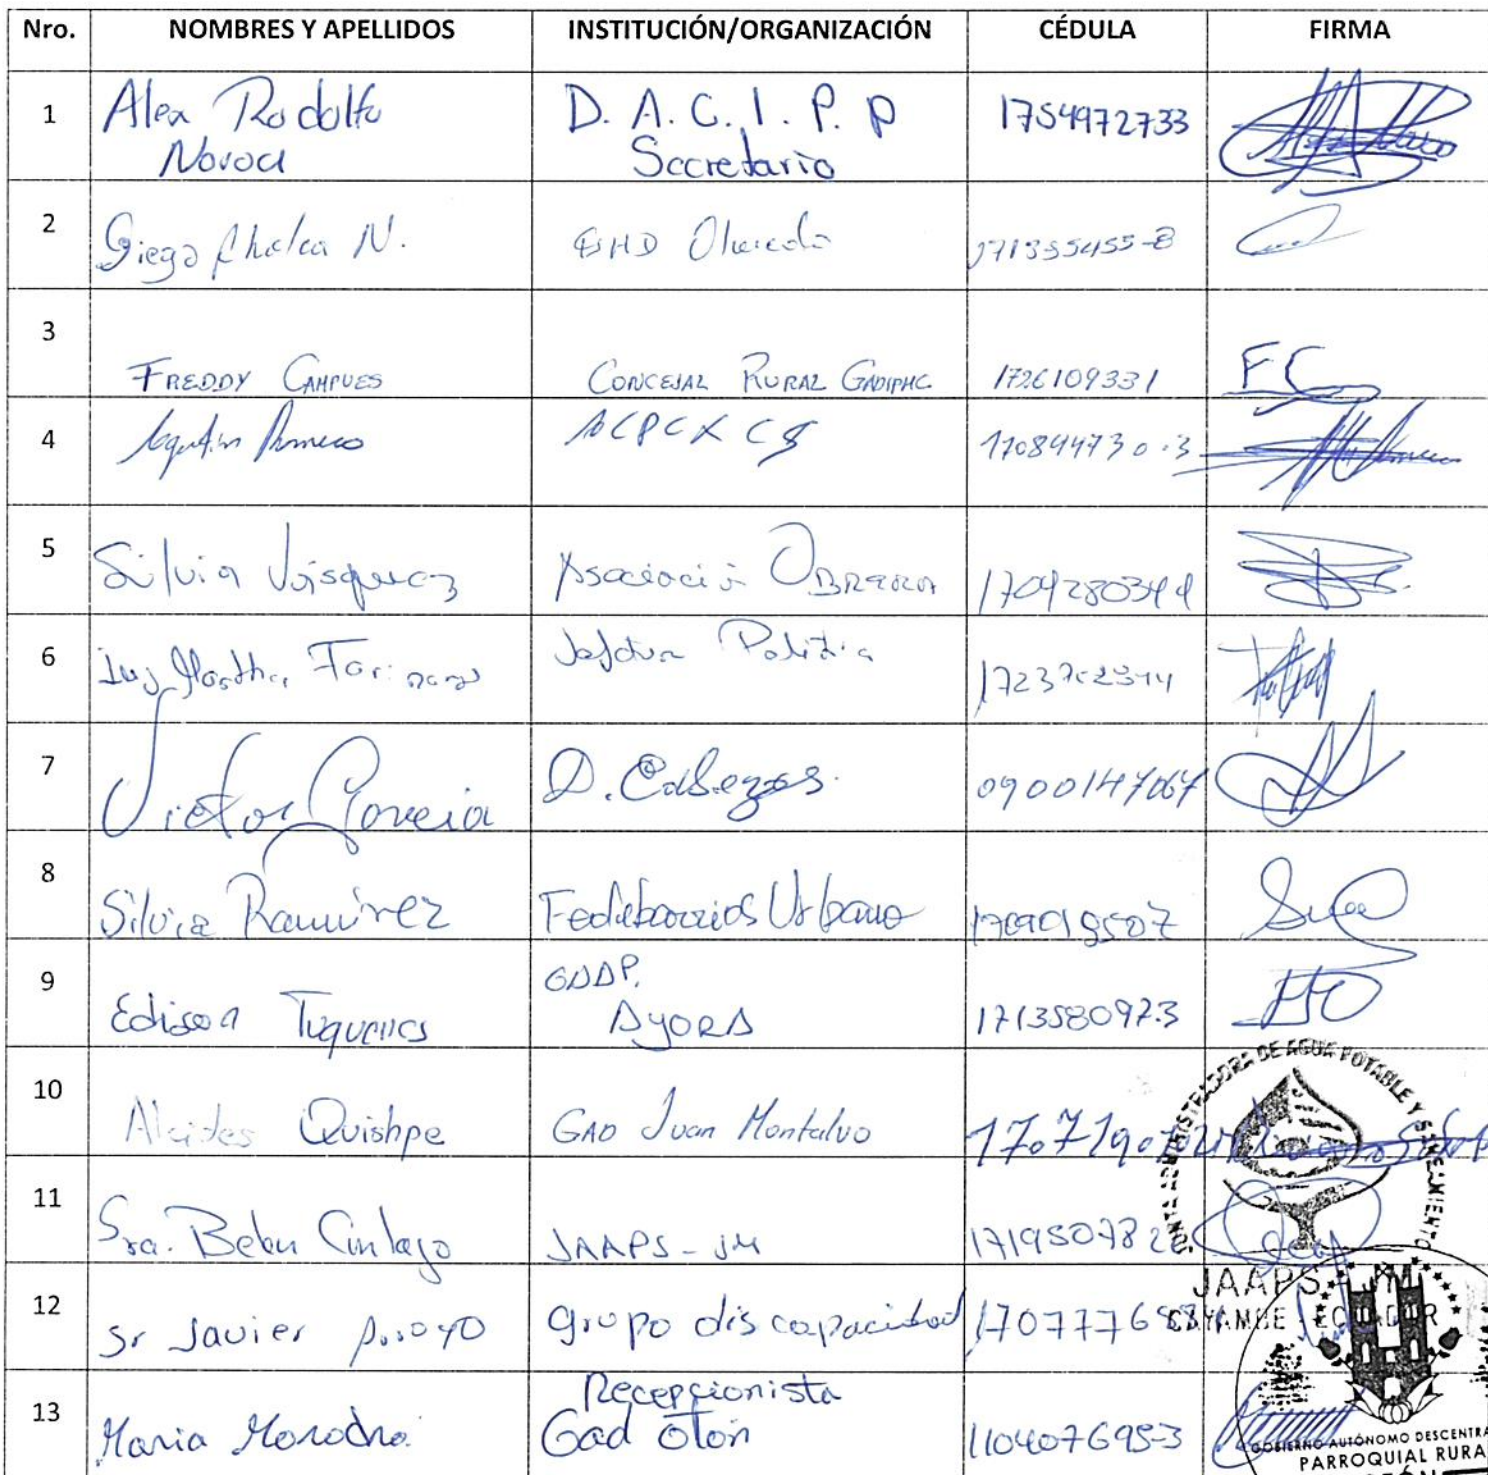 Nro. NOMBRES Y APELLIDOS INSTITUCIÓN/ORGANIZACIÓN CÉDULA FIRMA
1 Alex Rodolfo Novoa D. A. C. I. P. P Secretario 1754972733
2 Diego N. 171355455-8
3 FREDDY CAMPUES CONCEJAL RURAL GADIPMC 1726109331 FC
4 Agustin Romero 170894730-3
5 Silvia Vásquez Asociación OBRERA
6 Luz Martha Farinango Jefatura Política
7 Victor Gaveia D. Cabezas 0900147067
8 Silvia Ramírez Urbano
9 Edison Tuquerres GADP. AYORA 171358097-3
10 Alcides Quishpe GAD Juan Montalvo
11 Sra. Belen JAAPS-JM
12 Sr Javier Arroyo grupo discapacidad
13 Maria Morocho Recepcionista Gad Otón 110407695-3
JUNTA ADMINISTRADORA DE AGUA POTABLE Y SANEAMIENTO
JAAPS - JM
CAYAMBE - ECUADOR
GOBIERNO AUTÓNOMO DESCENTRA
PARROQUIAL RURA